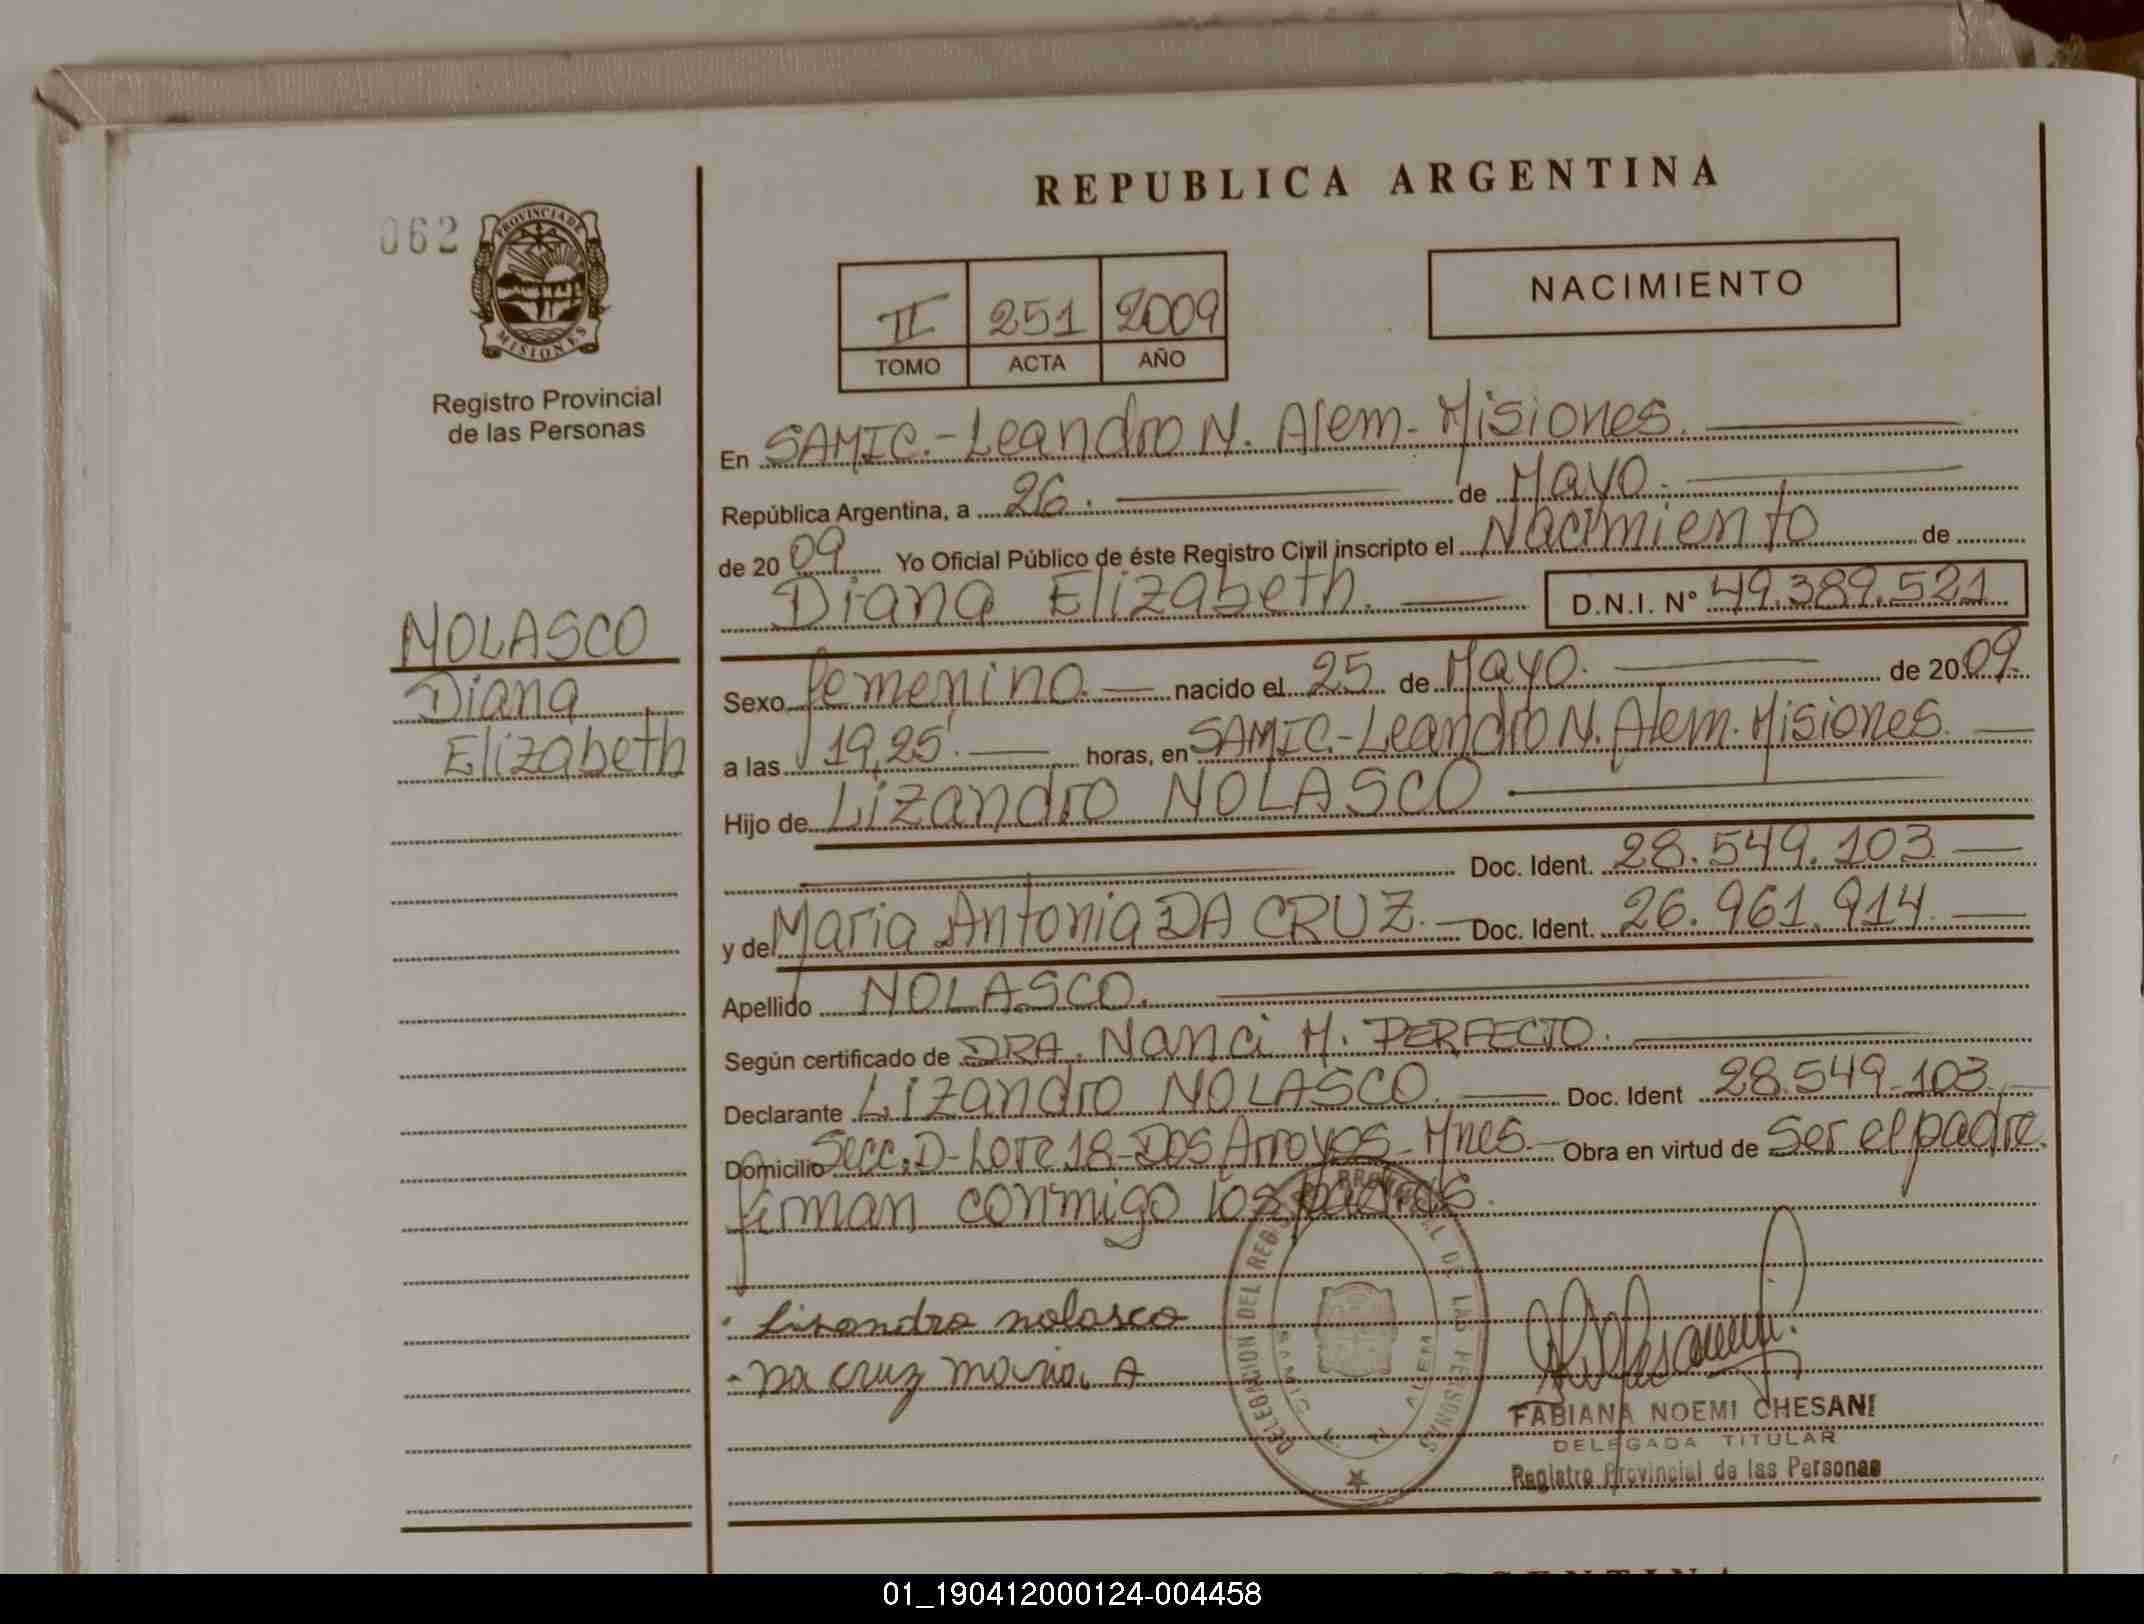 REPUBLICA ARGENTINA
062
PROVINCIA DE
MISIONES
Registro Provincial
de las Personas
NACIMIENTO
II 251 2009
TOMO ACTA AÑO
En SAMIC.-Leandro N. Alem-Misiones.
República Argentina, a 26. de Mayo.
de 20 09 Yo Oficial Público de éste Registro Civil inscripto el Nacimiento de
Diana Elizabeth. D.N.I. Nº 49.389.521
NOLASCO
Diana
Elizabeth
Sexo femenino. nacido el 25 de Mayo. de 20 09.
a las 19,25'. horas, en SAMIC.-Leandro N. Alem. Misiones.
Hijo de Lizandro NOLASCO
Doc. Ident. 28.549.103
y de Maria Antonia DA CRUZ. Doc. Ident. 26.961.914
Apellido NOLASCO.
Según certificado de DRA. Nanci M. PERFECTO.
Declarante Lizandro NOLASCO. Doc. Ident 28.549.103.
Domicilio Secc. D-Lote 18-Dos Arroyos-Mnes. Obra en virtud de Ser el padre.
firman conmigo los padres.
Lisandro nolasco
Da cruz maria. A
DELEGACION DEL REG. PROVINCIAL DE LAS PERSONAS
SAMIC L. N. ALEM
FABIANA NOEMI CHESANI
DELEGADA TITULAR
Registro Provincial de las Personas
01_190412000124-004458